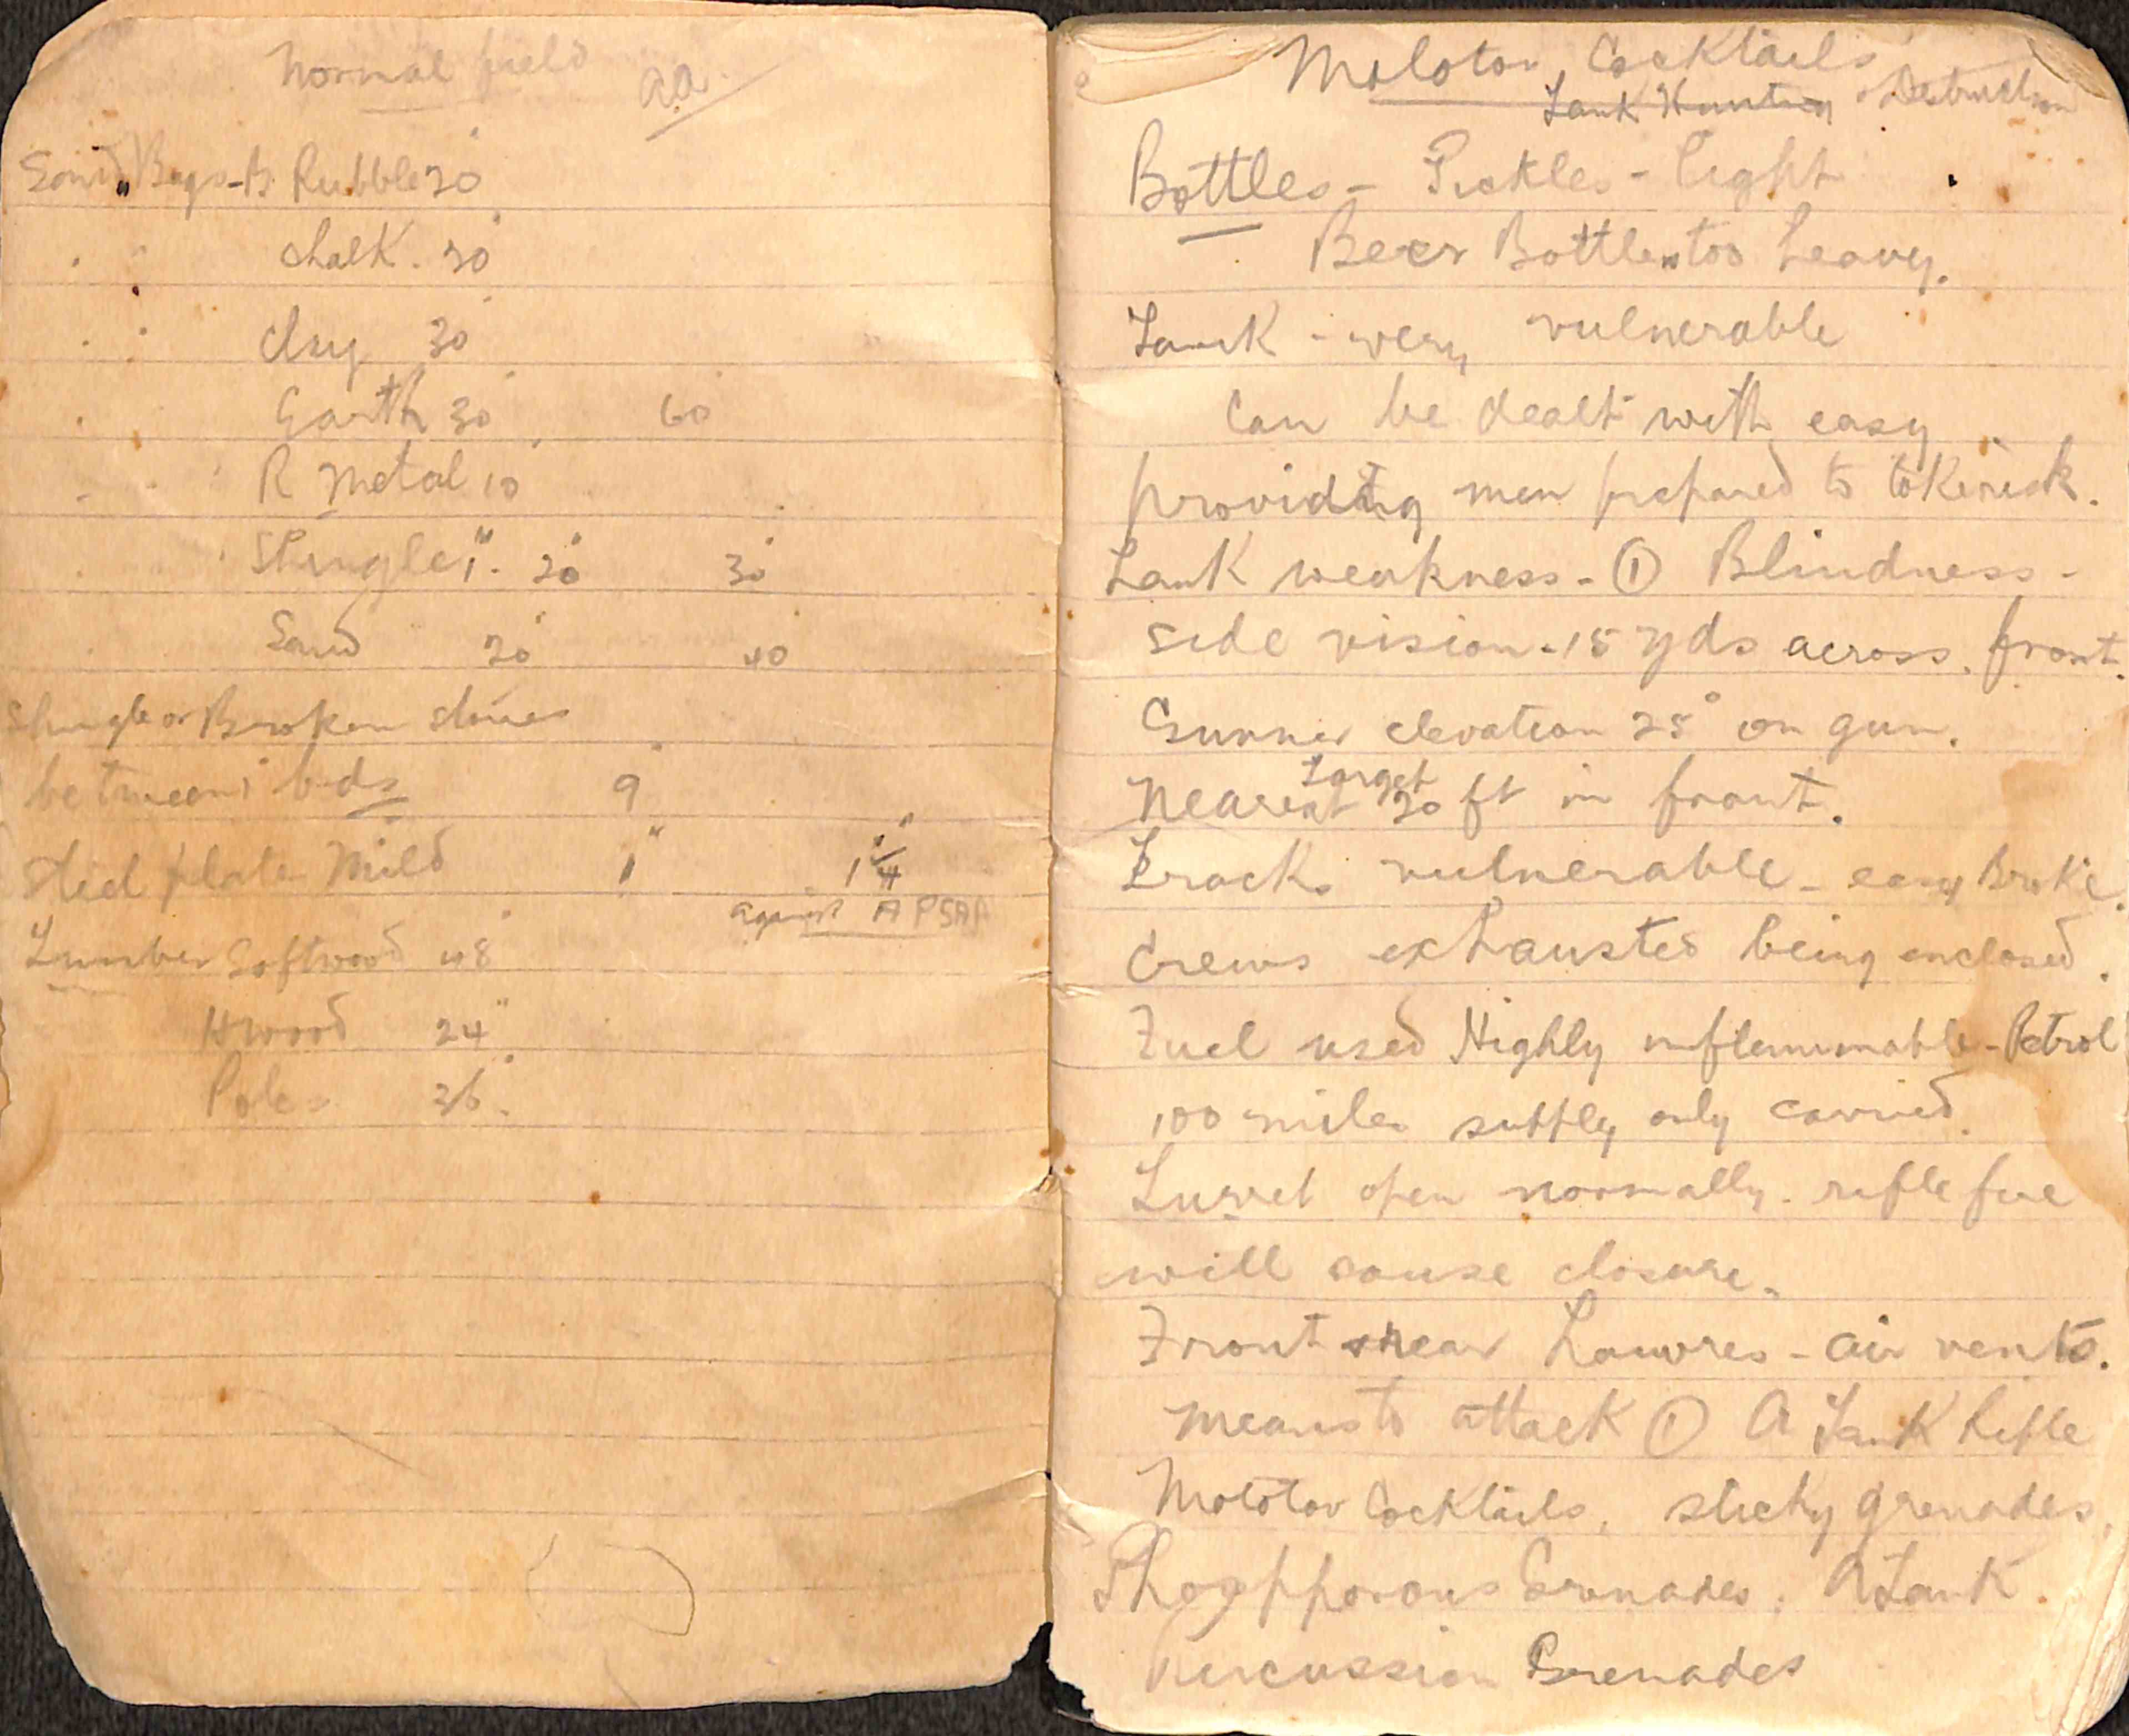 Normal field aa
Sand Bags - B Rubble 20"
" " chalk. 20"
" " clay 30"
" Earth 30" 60
" " R metal 10
" Shingle 1" - 20" 30"
Sand 20" 40
Shingle or Broken stones
between 1" bds 9"
Steel plate Mild 1" 1 1/4"
against A P SAA
Lumber Softwood 48"
Hwood 24"
Poles 36".
Molotov Cocktails
Tank Hunting & Destruction
Bottles - Pickles - light
Beer Bottles too heavy.
Tank - very vulnerable
Can be dealt with easy
providing men prepared to take risk.
Tank weakness - ① Blindness -
side vision - 15 yds across. front.
Gunner elevation 25° on gun.
Target
Nearest 20 ft in front.
Tracks vulnerable - easy Broke.
Crews exhausted being enclosed.
Fuel used Highly inflammable - Petrol
100 miles supply only carried.
Turret open normally. rifle fire
will cause closure.
Front rear Louvres - air vents.
means to attack ① A Tank Rifle
Molotov Cocktails, sticky grenades,
Phospporous Grenades. A Tank.
Percussion Grenades